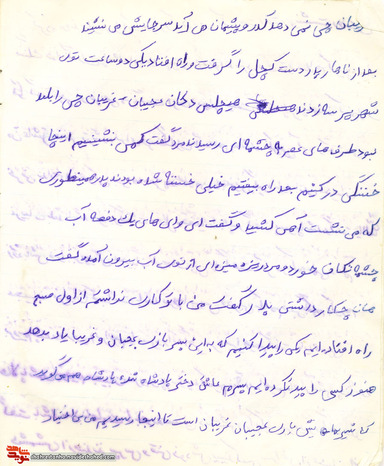 دربان چی نمی دهد کدر و پشیمان می آید سر جایش می نشیند
بعد از ناهار یار دست کچل را گرفت و راه افتاد یکی دو ساعت توی
شهر پرسه زدند هیچکس دکان عجیبان غریبان چی را بلد
نبود طرف های عصر به چشمه ای رسیدند مرد گفت کمی بنشینیم اینجا
خستگی در کنیم بعد راه بیفتیم خیلی خسته شده بودند پدر همینطوری
که می نشست آهی کشید و گفت ای وای های یک دفعه آب
چشمه تکان خورد و مرد ریزه میزه ای از توی آب بیرون آمد و گفت
هان چکار داشتی پدر گفت من با تو کاری نداشتم از اول صبح
راه افتاده ایم یکی را پیدا کنیم که به این پسر بازی عجیبان و غریبان یاد بدهد
هنوز کسی را پیدا نکرده ایم پسرم عاشق دختر پادشاه شده پادشاه هم می گوید
که شیربهاش بازی عجیبان غریبان است تا اینجا رسیدیم بی اختیار
dashrdonbe.navideshahed.com